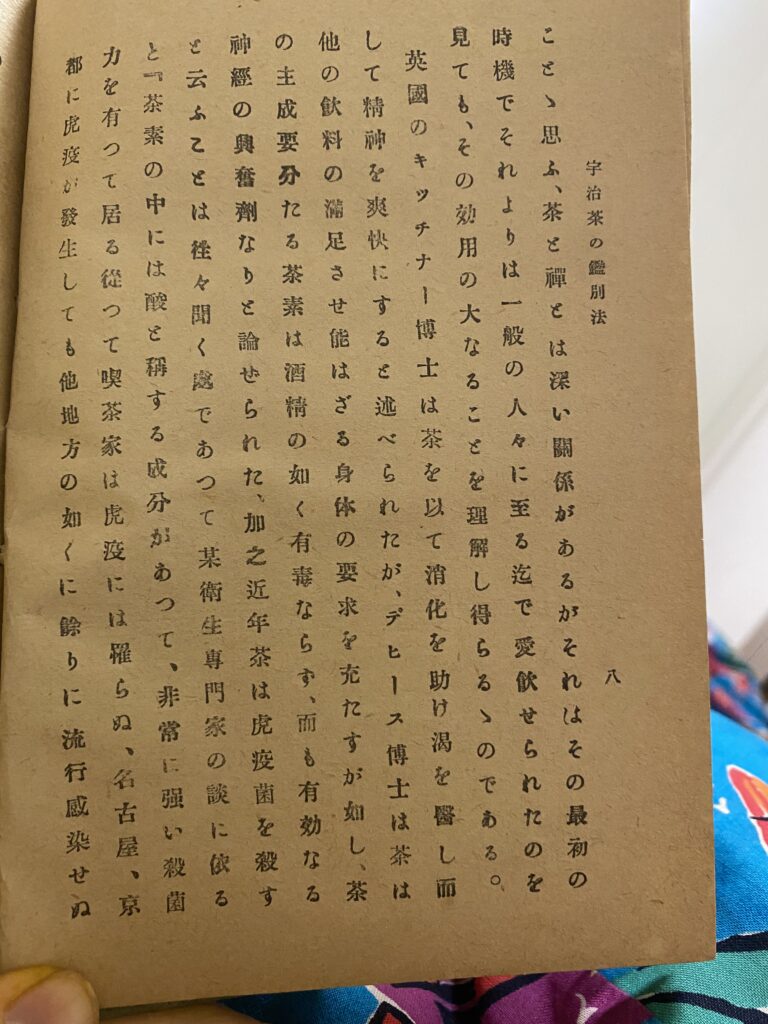 宇治茶の鑑別法
八
ことゝ思ふ、茶と禪とは深い關係があるがそれはその最初の
時機でそれよりは一般の人々に至る迄で愛飮せられたのを
見ても、その効用の大なることを理解し得らるゝのである。
英國のキッチナー博士は茶を以て消化を助け渇を醫し而
して精神を爽快にすると述べられたが、デヒース博士は茶は
他の飮料の滿足させ能はざる身体の要求を充たすが如し、茶
の主成要分たる茶素は酒精の如く有毒ならず、而も有効なる
神經の興奮劑なりと論せられた、加之近年茶は虎疫菌を殺す
と云ふことは徃々聞く處であつて某衛生專門家の談に依る
と『茶素の中には酸と稱する成分があつて、非常に强い殺菌
力を有つて居る從つて喫茶家は虎疫には罹らぬ、名古屋、京
都に虎疫が發生しても他地方の如くに餘りに流行感染せぬ